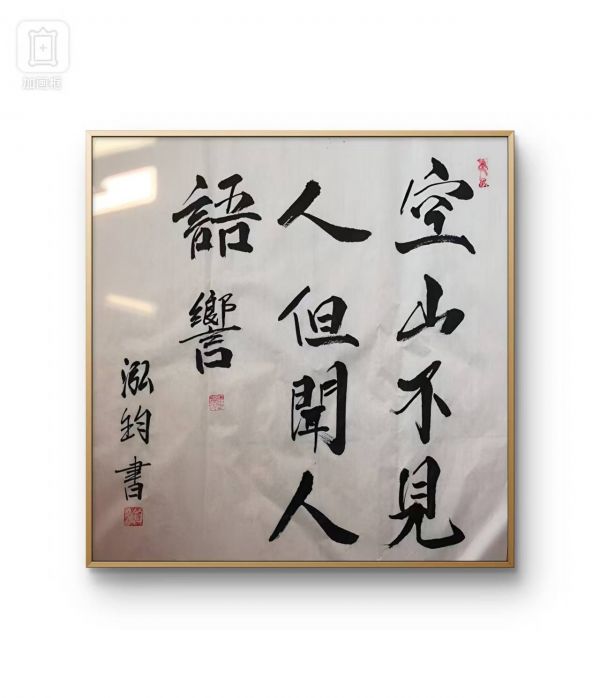 空山不見
人但聞人
語響
泓鈞書
加画框